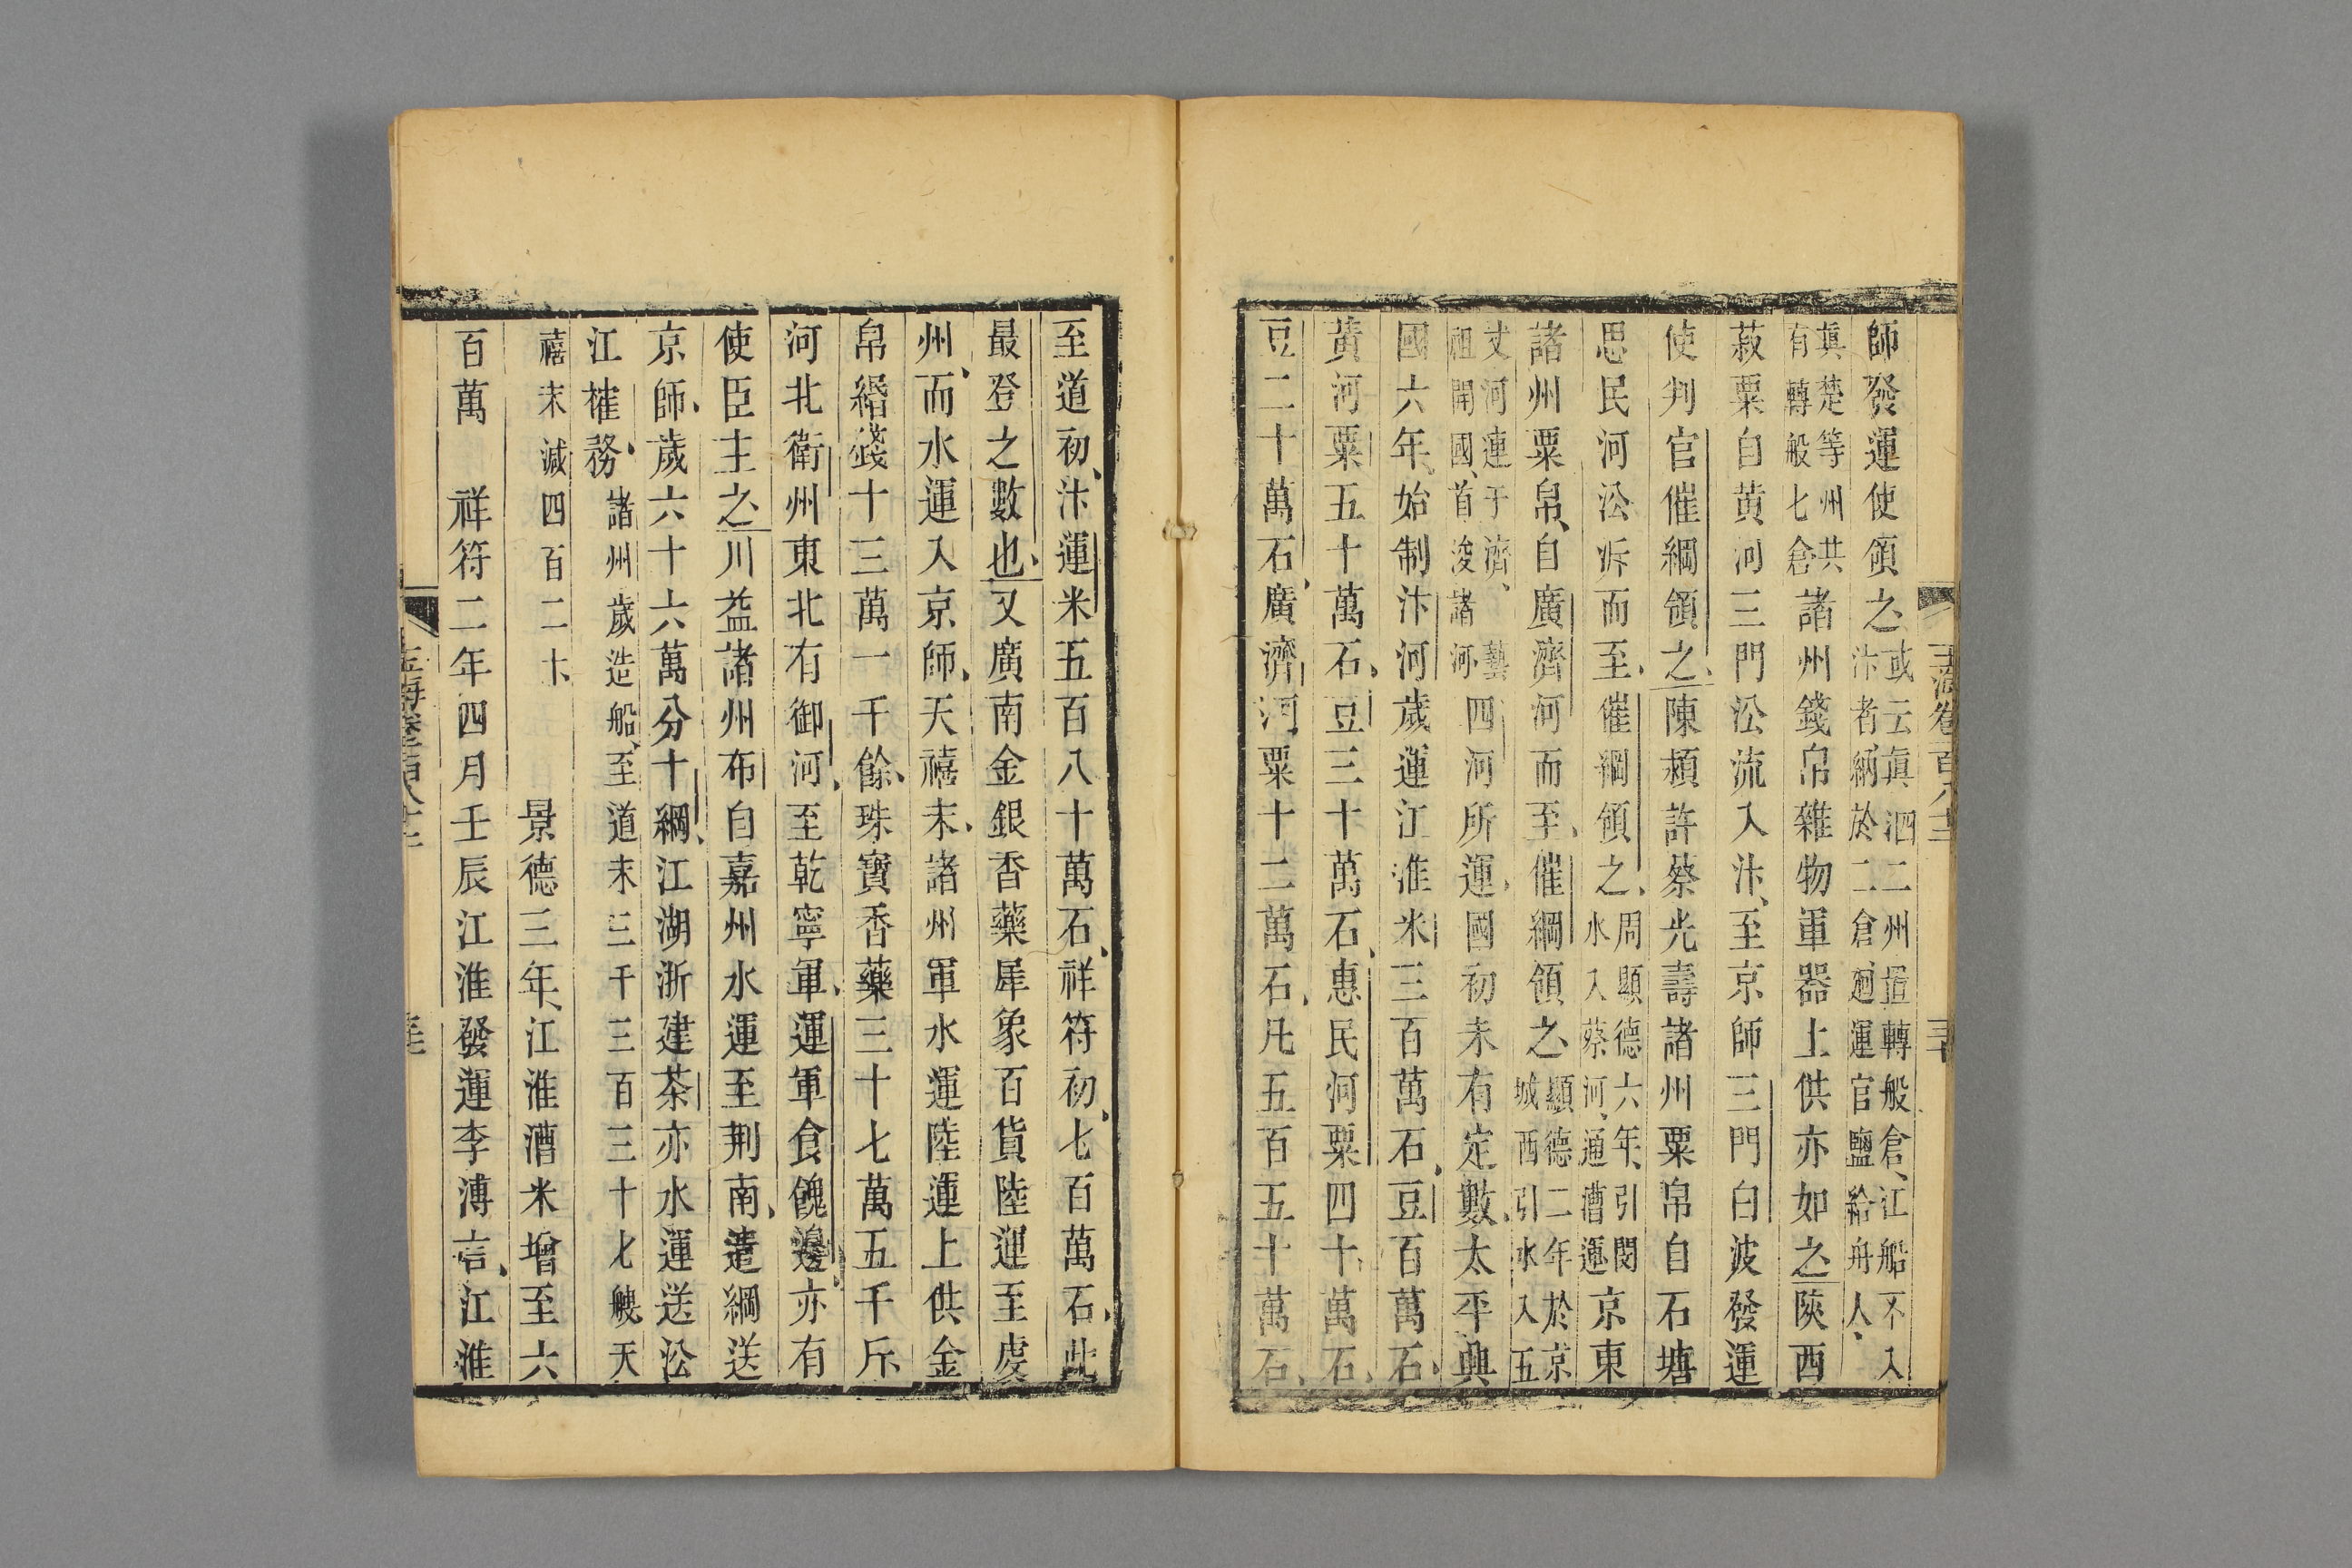 師發運使領之或云眞泗二州置轉般倉江船不入
汴者納於二倉廻運官鹽給舟人
眞楚等州共
有轉般七倉諸州錢帛雜物軍器上供亦如之陝西
菽粟自黃河三門㳂流入汴至京師三門白波發運
使判官催綱領之陳潁許蔡光壽諸州粟帛自石塘
惠民河㳂泝而至催綱領之周顯德六年引閔
水入蔡河通漕運京東
諸州粟帛自廣濟河而至催綱領之顯德二年於京
城西引水入五
丈河連于濟藝
祖開國首浚諸河四河所運國初未有定數太平興
國六年始制汴河歲運江淮米三百萬石豆百萬石
黃河粟五十萬石豆三十萬石惠民河粟四十萬石
豆二十萬石廣濟河粟十二萬石凡五百五十萬石
至道初汴運米五百八十萬石祥符初七百萬石此
最登之數也又廣南金銀香藥犀象百貨陸運至虔
州而水運入京師天禧末諸州軍水運陸運上供金
帛緡錢十三萬一千餘珠寶香藥三十七萬五千斤
河北衛州東北有御河至乾寧軍運軍食餽邊亦有
使臣主之川益諸州布自嘉州水運至荆南遣綱送
京師歲六十六萬分十綱江湖浙建茶亦水運送㳂
江榷務諸州歲造船至道末三千三百三十七艘天
禧末減四百二十 景德三年江淮漕米增至六
百萬 祥符二年四月壬辰江淮發運李溥言江淮